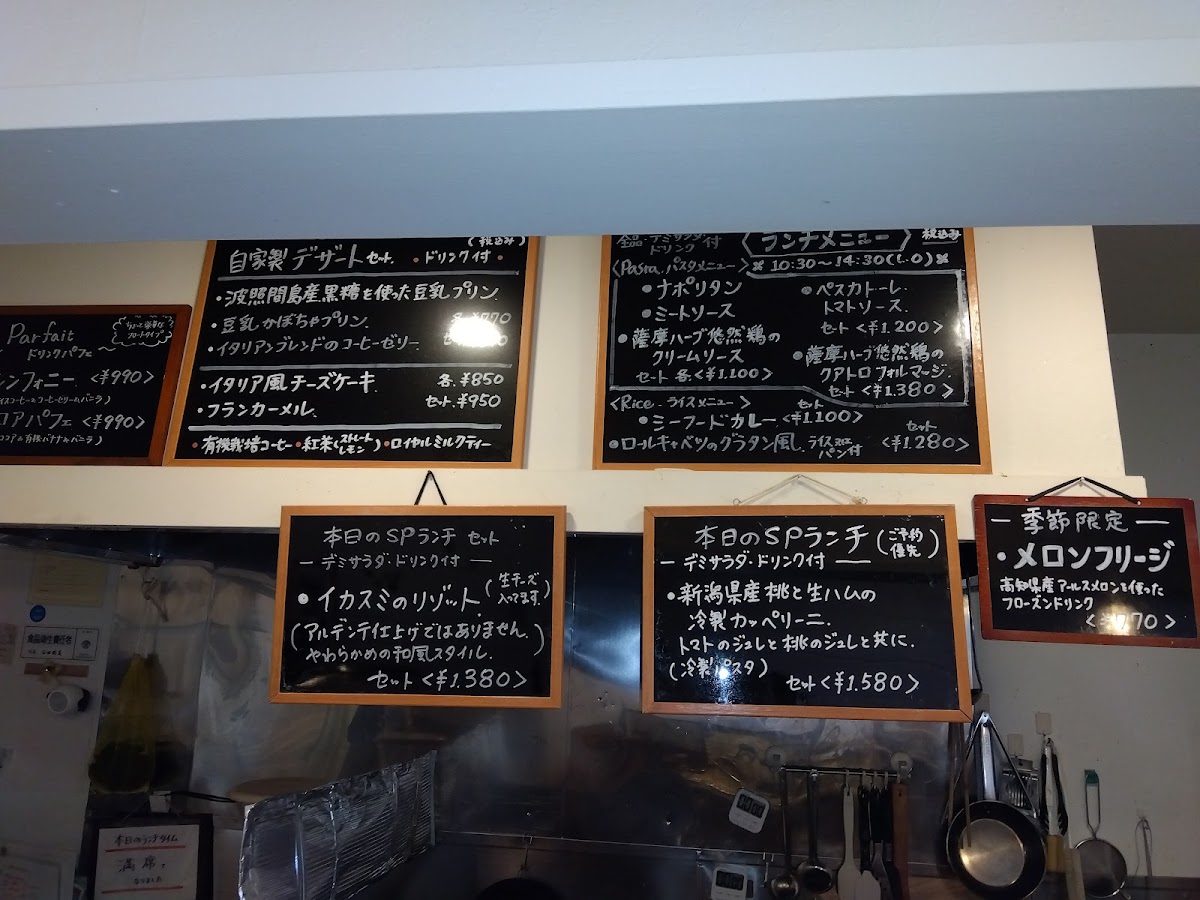 Parfait
ドリンクパフェ
ンフォニー <¥990>
コアパフェ <¥990>
(税込み)
自家製デザートセット ・ドリンク付・
・波照間島産黒糖を使った豆乳プリン.
・豆乳かぼちゃプリン.
・イタリアンブレンドのコーヒーゼリー.
・イタリア風チーズケーキ 各.¥850
・フランカーメル. セット.¥950
・有機栽培コーヒー・紅茶(ストレート レモン)・ロイヤルミルクティー
全品・デミサラダ・ドリンク付 <ランチメニュー> 税込み
<Pasta.パスタメニュー> ※10:30~14:30(L.O)※
・ナポリタン
・ミートソース
・薩摩ハーブ悠然鶏の
クリームソース
セット各<¥1.100>
・ペスカトーレ.
トマトソース.
セット<¥1.200>
・薩摩ハーブ悠然鶏の
クアトロフォルマッジ.
セット<¥1.380>
<Rice.ライスメニュー>
・シーフードカレー セット<¥1.100>
・ロールキャベツのグラタン風.ライス又はパン付 セット<¥1.280>
本日のSPランチ セット
ー デミサラダ・ドリンク付 ー
・イカスミのリゾット(生チーズ入ってます.)
(アルデンテ仕上げではありません.
やわらかめの和風スタイル.)
セット<¥1.380>
本日のSPランチ(ご予約優先)
ー デミサラダ・ドリンク付 ー
・新潟県産桃と生ハムの
冷製カッペリーニ.
トマトのジュレと桃のジュレと共に.
(冷製パスタ)
セット<¥1.580>
ー季節限定ー
・メロンフリージ
高知県産アールスメロンを使った
フローズンドリンク
<¥770>
食品衛生責任者
本日のランチタイム
満席で
なりました